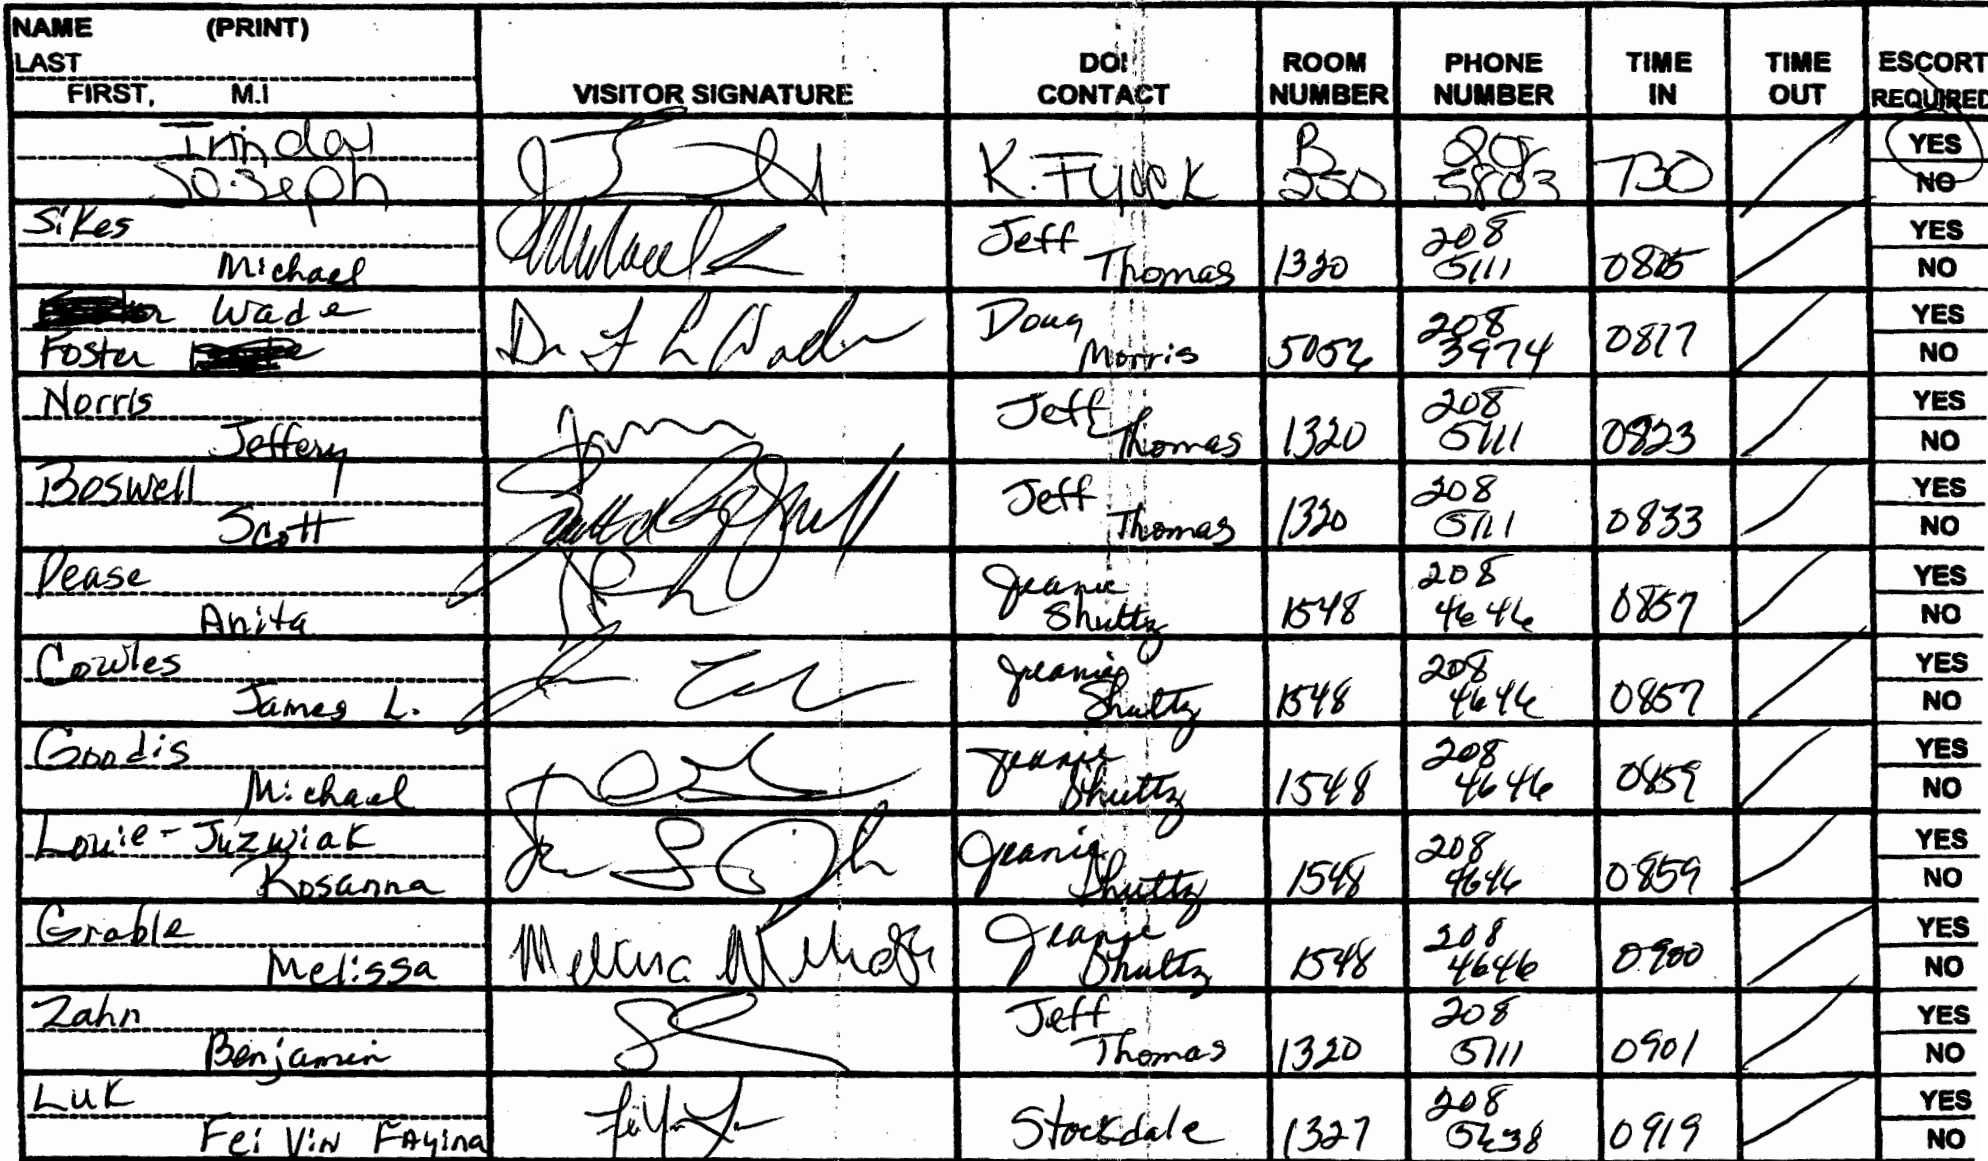 NAME (PRINT)
LAST
FIRST, M.I
VISITOR SIGNATURE
DOI CONTACT
ROOM NUMBER
PHONE NUMBER
TIME IN
TIME OUT
ESCORT REQUIRED
Joseph K. B 250 5803 730 YES NO
Sikes Michael Jeff Thomas 1320 208 5111 YES NO
Wade Foster Doug Morris 208 3974 0817 YES NO
Norris Jeffery Jeff Thomas 1320 208 5111 0823 YES NO
Boswell Scott Jeff Thomas 1320 208 5111 0833 YES NO
Pease Anita Jeanie Shultz 1548 208 4646 0857 YES NO
Cowles James L. Jeanie Shultz 1548 208 4646 0857 YES NO
Goodis Michael Jeanie Shultz 1548 208 4646 0859 YES NO
Louie-Juzwiak Rosanna Jeanie Shultz 1548 208 4646 0859 YES NO
Grable Melissa Jeanie Shultz 1548 208 4646 0900 YES NO
Zahn Benjamin Jeff Thomas 1320 208 5111 0901 YES NO
Luk Fei Yin Stockdale 1327 208 0919 YES NO